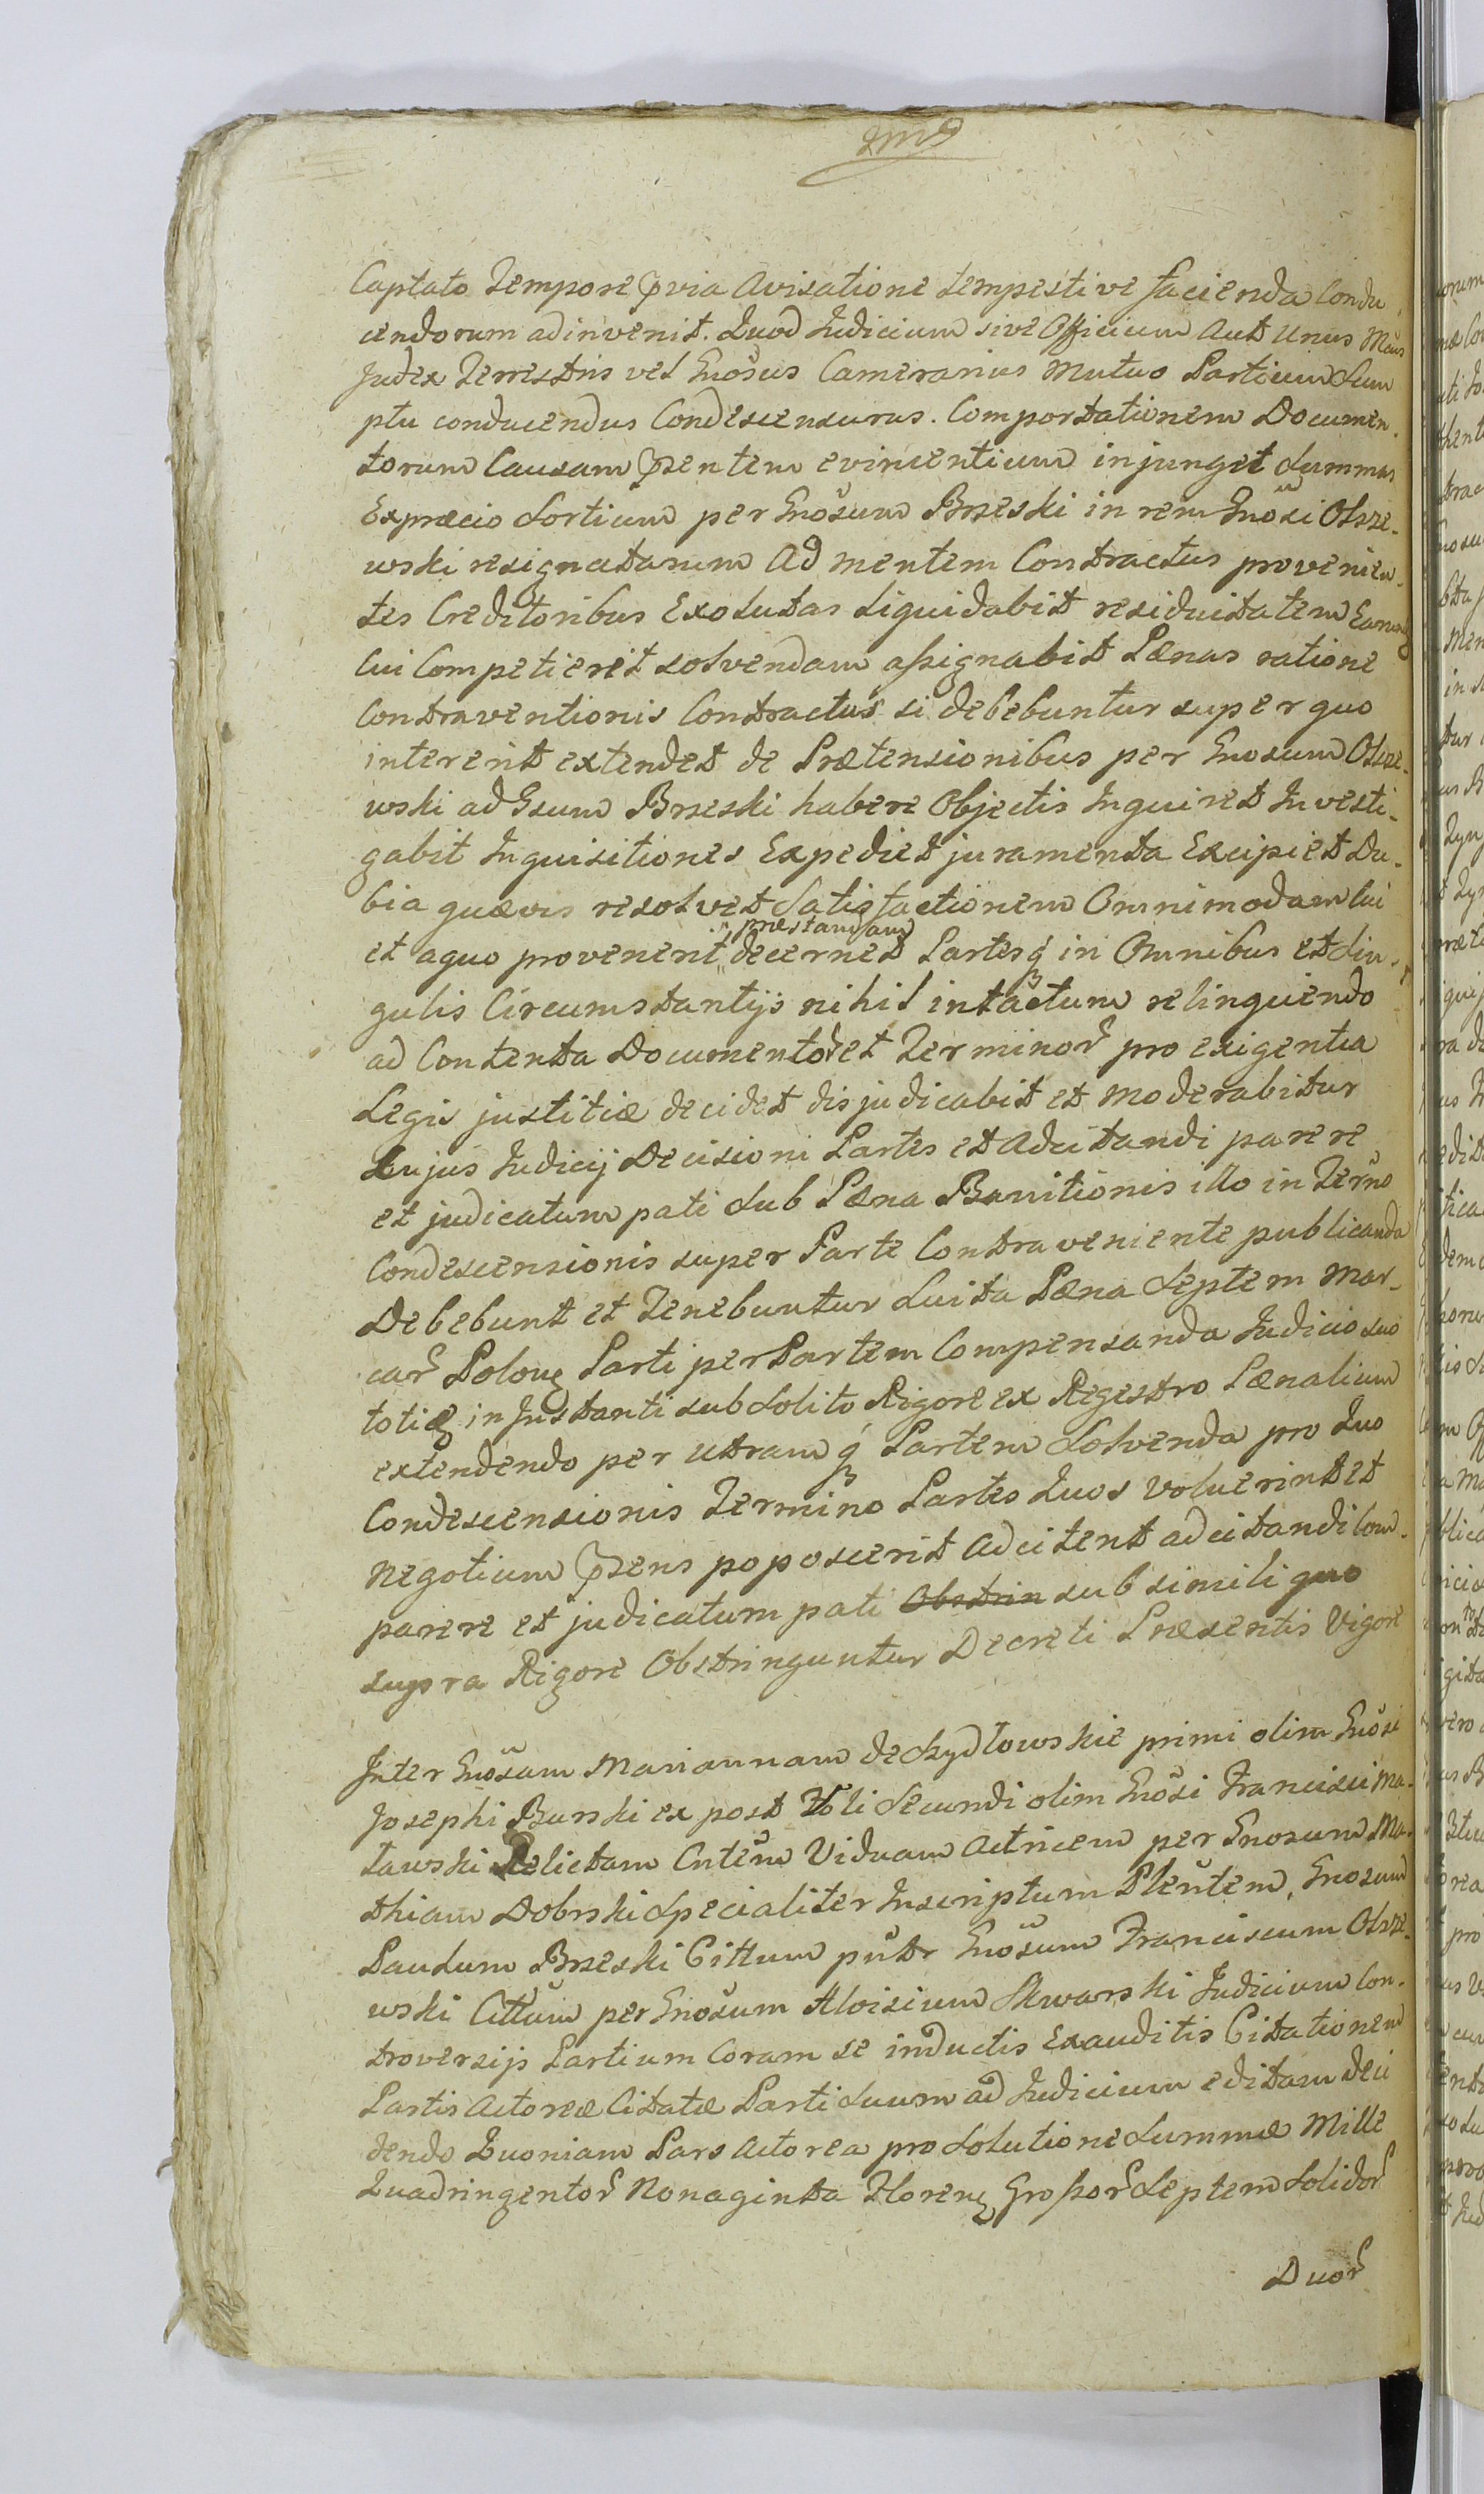 Captato Tempore pvia Avisatione tempestive facienda Condu
cendorum adinvenit. Quod Judicium sive Officium Aut Unus
Judex Terrestris vel Gnosus Camerarius Mutuo Partium Sum
ptu conducendus Condescensurus. Comportationem Documen-
torum Causam pzentem evincentium injunget Summas
Ex præcio Sortium per Gnosum Brzeski in rem Gnosi Olsze-
wski resignatarum Ad mentem Contractus provenien-
tes Creditoribus Exolutas liquidabit residuitatem
Cui Competierit solvendam assignabit Pænas ratione
Contraventionis Contractus si debebuntur super quo
intererit extendet de Prætensionibus per Gnosum Olsze-
wski ad Gsum Brzeski habere Objectis Inquiret Investi-
gabit Inquisitiones Expediet juramenta Excipiet Du-
bia quævis resolvet Satisfactionem Omnimodam Cui
præstandam
et aquo provenerit decernet Partesq in Omnibus et Sin-
gulis Circumstantijs nihil intactum relinquendo
ad Contenta Documentor et Terminor pro exigentia
Legis justitiæ decidet disjudicabit et moderabitur
Cujus Judicij Decisioni Partes et Adcitandi parere
et judicatum pati sub Pæna Bannitionis illo in Termo
Condescensionis super Parte Contraveniente publicanda
Debebunt et Tenebuntur Luita Pæna Septem Mar-
car Polon Parti per Partem Compensanda Judicio suo
toties in Instanti sub Solito Rigore ex Regestro Pænalium
extendendo per utramq Partem Solvenda pro Quo
Condescensionis Termino Partes Quos Voluerint et
negotium pzens poposcerit adcitent adcitandi
parere et judicatum pati Obstrin sub simili quo
supra Rigore Obstringuntur Decreti Præsentis Vigore
Inter Gnosam Mariannam de Szydłowskie primi olim Gnosi
Josephi Burski ex post Voti Secundi olim Gnosi Francisci Ma-
tawski Relictam Cntem Viduam Actricem per Gnosum Ma-
thiam Dobrski Specialiter Inscriptum Plentem, Gnosum
Paulum Brzeski Cittum Gnosum Franciscum Olsze-
wski Cittum per Gnosum Aloisium Skwarski Judicium Con-
troversijs Partium Coram se inductis Exauditis Citationem
Partis Actoreæ Citatæ Parti Suum ad Judicium editam deci
dendo Quoniam Pars Actorea pro Solutione Summæ Mille
Quadringentor Nonaginta Floren Grossor Septem Solidor
Duor